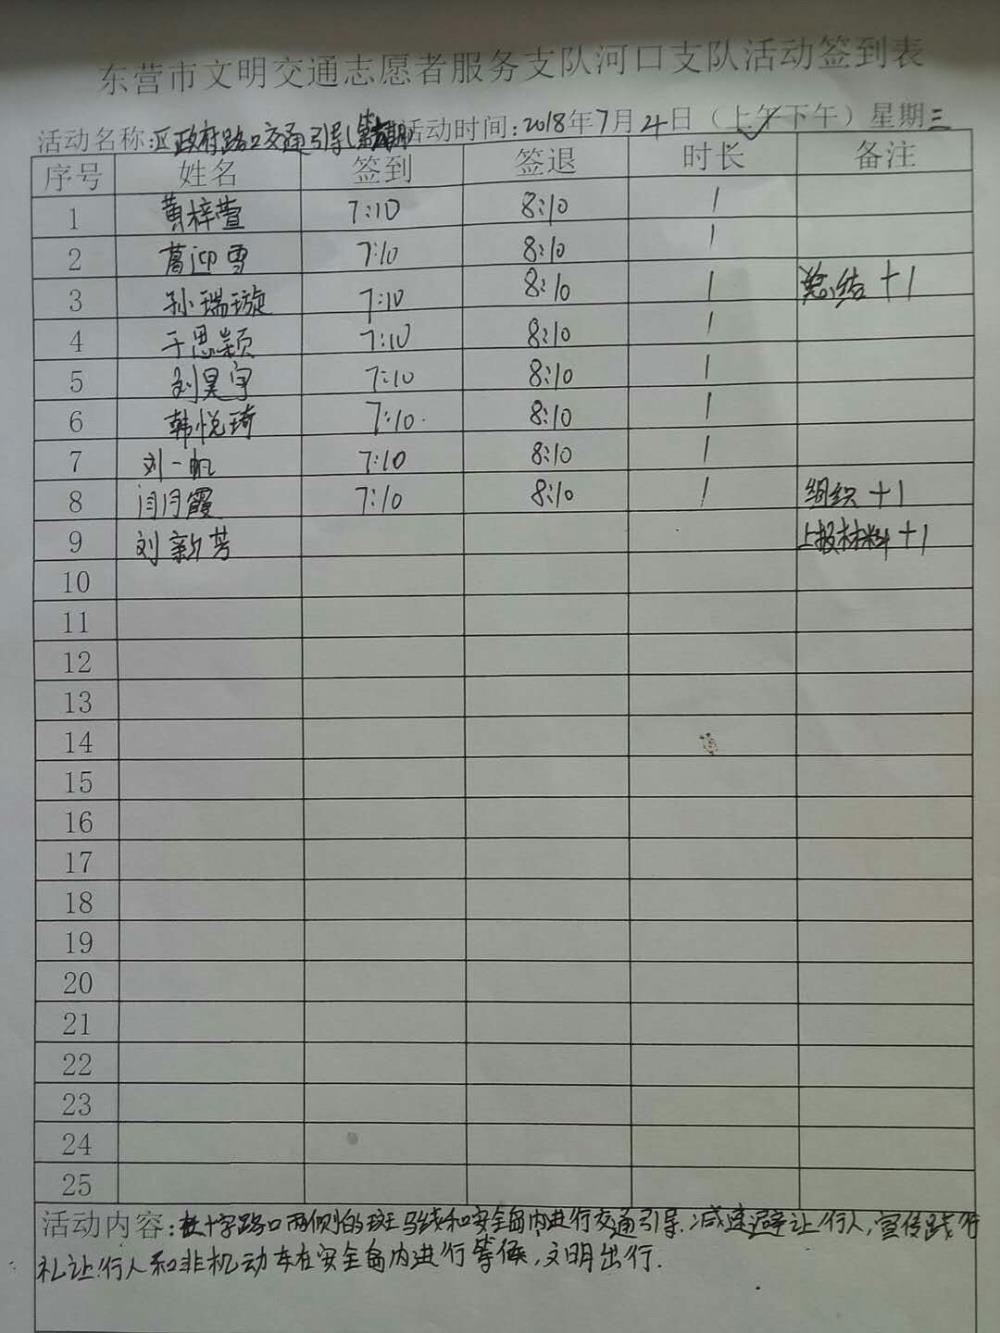 东营市文明交通志愿者服务支队河口支队活动签到表
活动名称:区政府路口交通引导( 活动时间:2018年7月4日(上午下午)星期三
序号 姓名 签到 签退 时长 备注
1 黄梓萱 7:10 8:10 1
2 葛迎雪 7:10 8:10 1
3 孙瑞璇 7:10 8:10 1 总结+1
4 于思颖 7:10 8:10 1
5 刘昊宇 7:10 8:10 1
6 韩悦琦 7:10 8:10 1
7 刘一帆 7:10 8:10 1
8 闫月霞 7:10 8:10 1 组织+1
9 刘新芳 上报材料+1
10
11
12
13
14
15
16
17
18
19
20
21
22
23
24
25
活动内容:在十字路口两侧的斑马线和安全岛内进行交通引导.减速避让行人,宣传践行
礼让.行人和非机动车在安全岛内进行等候,文明出行.